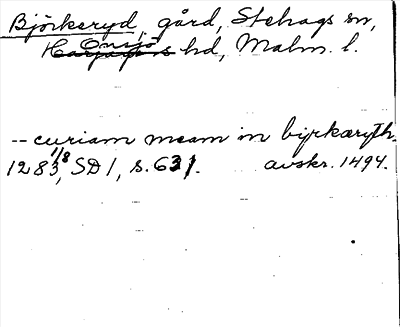 Björkeryd, gård, Stehags sn,
Onsjö hd, Malm. l.
-- curiam meam in byrkæryth.
1283 1/8, SD 1, s. 631. avskr. 1494.